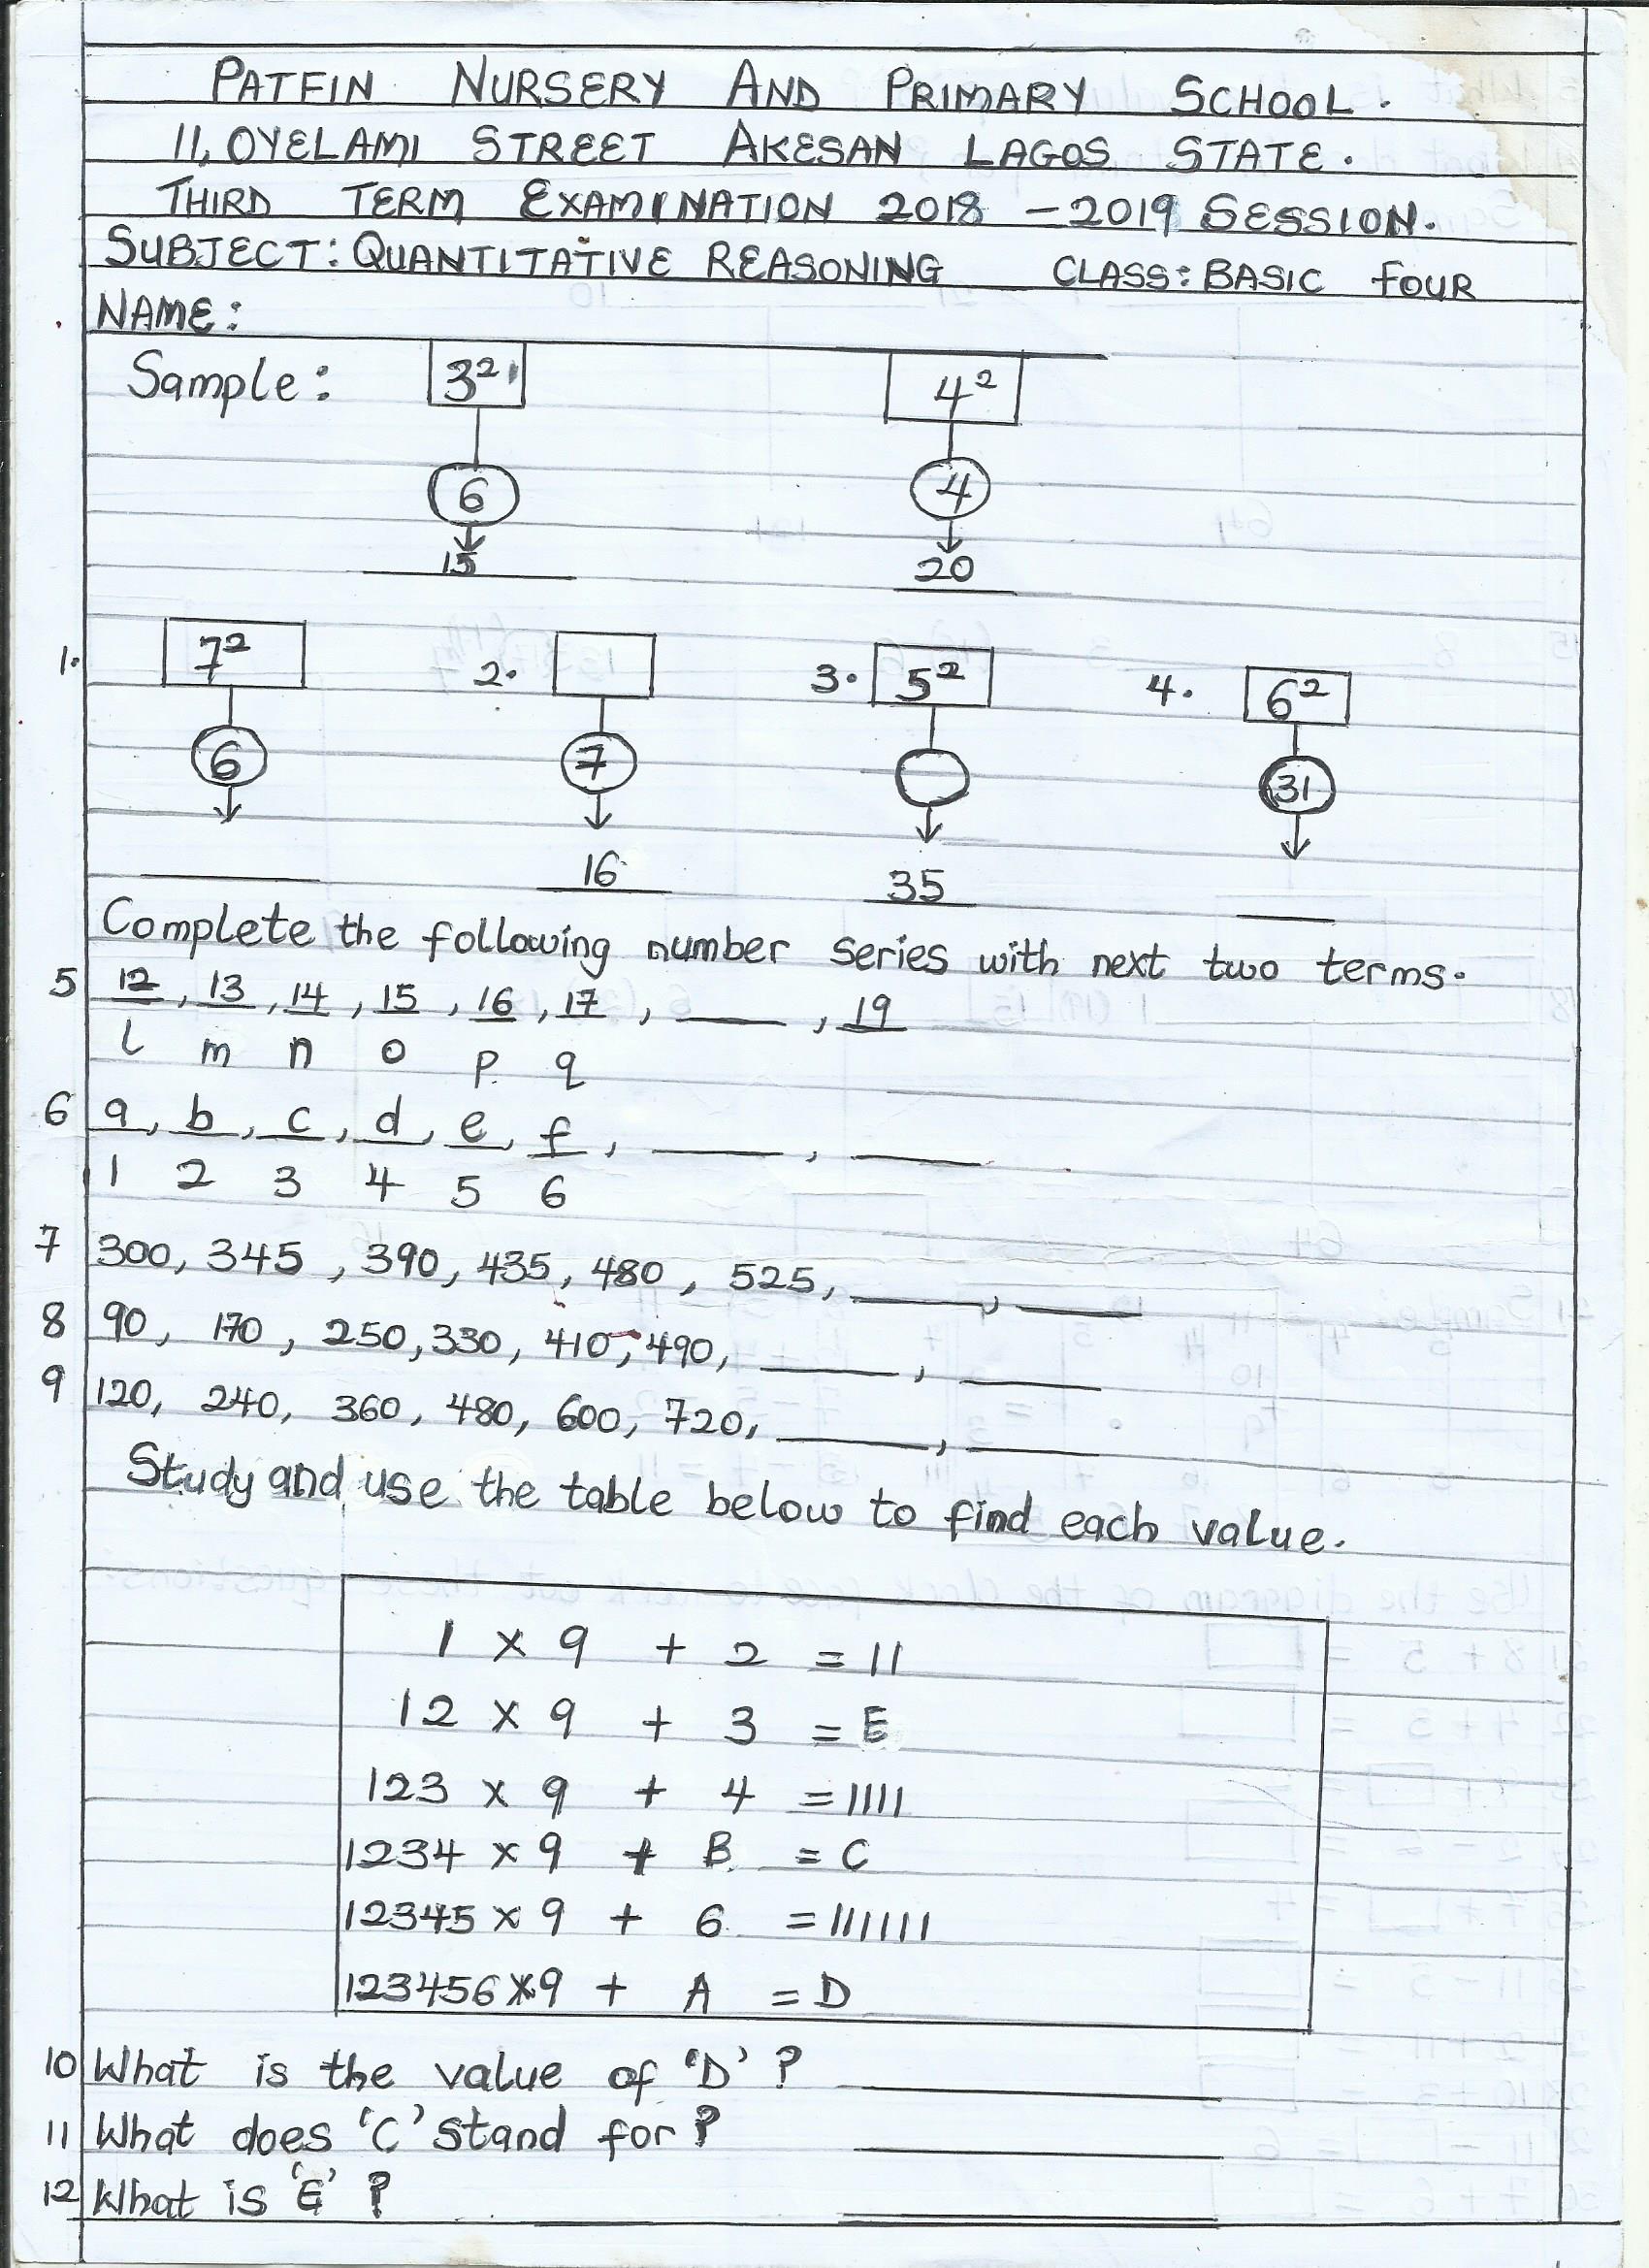 PATFIN NURSERY AND PRIMARY SCHOOL.
11, OYELAMI STREET AKESAN LAGOS STATE.
THIRD TERM EXAMINATION 2018 - 2019 SESSION.
SUBJECT: QUANTITATIVE REASONING CLASS: BASIC FOUR
NAME:
Sample: 3² 4²
6 4
15 20
1. 7² 2. 3. 5² 4. 6²
6 7 31
16 35
Complete the following number series with next two terms.
5 12, 13, 14, 15, 16, 17, ___, 19
l m n o p q
6 a, b, c, d, e, f, ___, ___
1 2 3 4 5 6
7 300, 345, 390, 435, 480, 525, ___, ___
8 90, 170, 250, 330, 410, 490, ___, ___
9 120, 240, 360, 480, 600, 720, ___, ___
Study and use the table below to find each value.
1 × 9 + 2 = 11
12 × 9 + 3 = E
123 × 9 + 4 = 1111
1234 × 9 + B = C
12345 × 9 + 6 = 111111
123456 × 9 + A = D
10 What is the value of 'D'? ___
11 What does 'C' stand for? ___
12 What is 'E'? ___